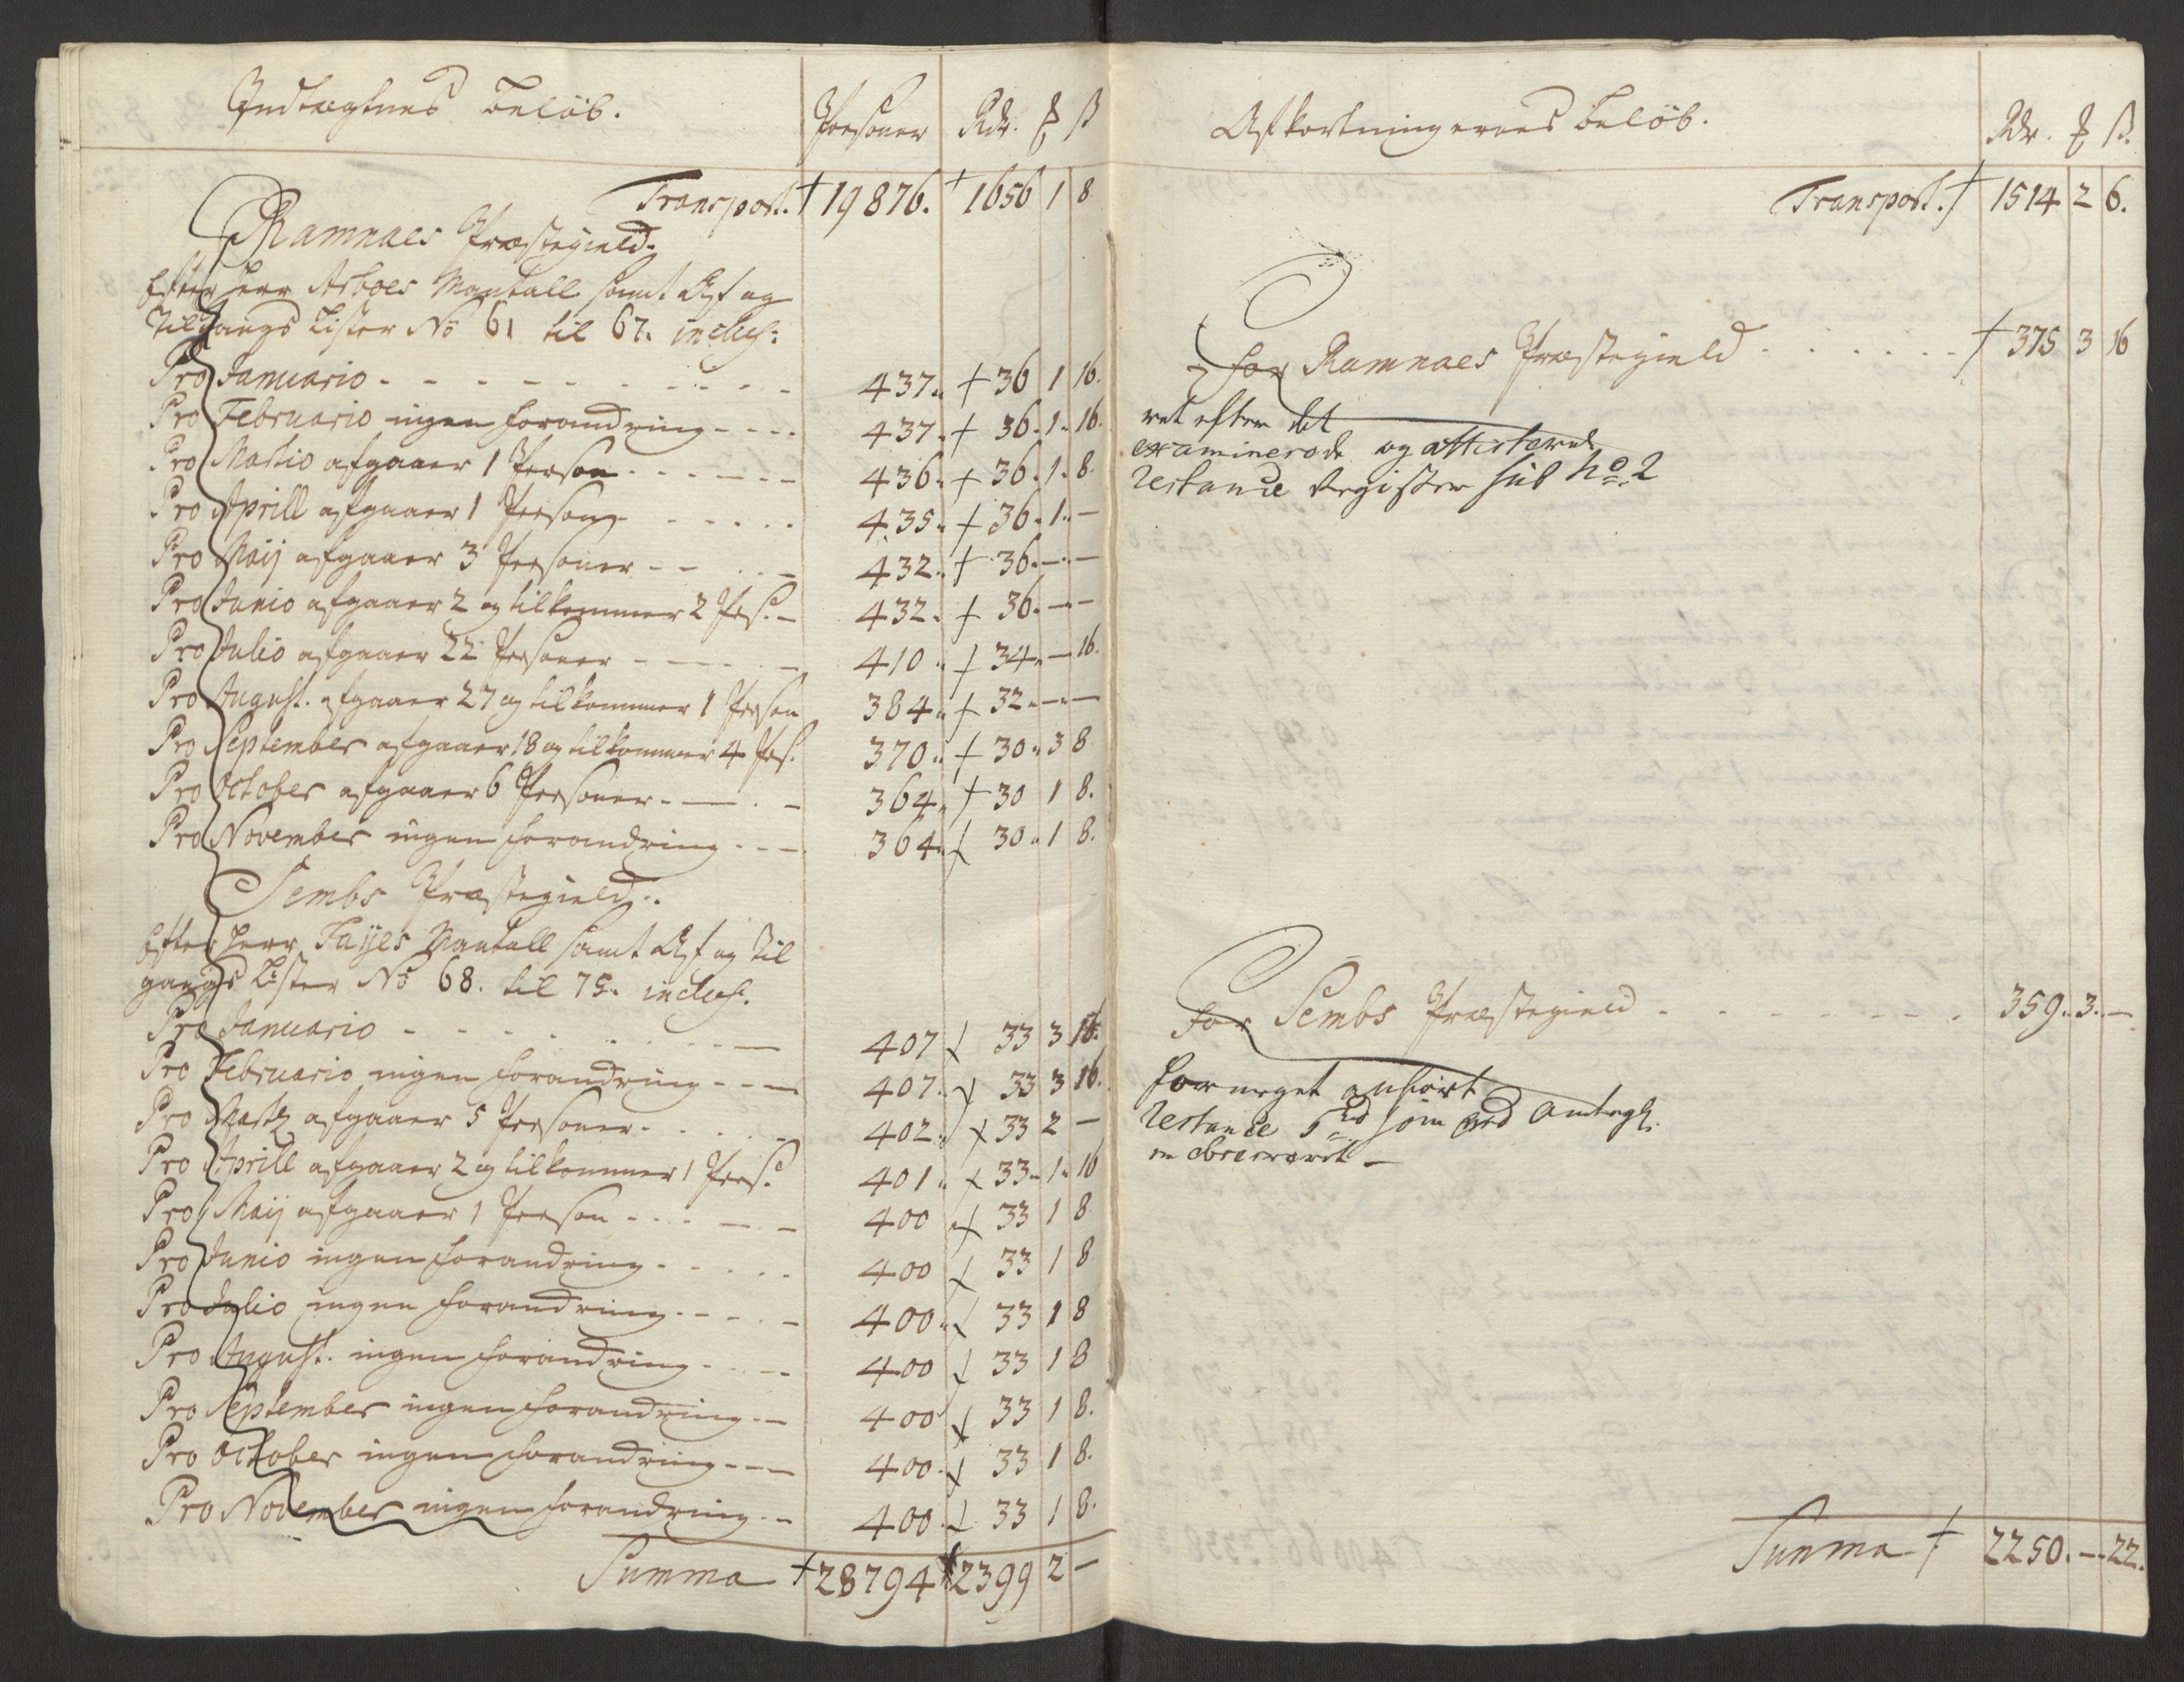 Indtægtnes Beløb. Personer Rdr. ℔ ß
Transport. † 19876. † 1656 1 8
Ramnæs Præstegield.
Efter Herr Arboes Mantall samt Af og
Tilgangs Lister No 61 til 67. inclus:
Pro Januario - - - - - 437. † 36 1 16.
Pro Februario ingen forandring - - - - 437. † 36. 1. 16.
Pro Martio afgaaer 1 Person - - - - - 436. † 36. 1. 8.
Pro Aprill afgaaer 1 Person - - - - - 435. † 36. 1. -
Pro Maij afgaaer 3 Personer - - - - 432. † 36. - -
Pro Junio afgaaer 2 og tilkommer 2 Pers. - 432. † 36. - -
Pro Julio afgaaer 22 Personer - - - - 410. † 34. - 16.
Pro August. afgaaer 27 og tilkommer 1 Person 384. † 32. - -
Pro September afgaaer 18 og tilkommer 4 Pers. 370. † 30. 3 8.
Pro October afgaaer 6 Personer - - - - 364. † 30 1 8.
Pro November ingen forandring - - - 364. † 30. 1 8.
Sembs Præstegield.
Efter Herr Fayes Mantall samt Af og Til
gangs Lister No 68. til 75. inclus.
Pro Januario - - - - - 407 † 33 3 16.
Pro Februario ingen forandring - - - 407. † 33 3 16.
Pro Martz afgaaer 5 Personer - - - - 402. † 33 2 -
Pro Aprill afgaaer 2 og tilkommer 1 Pers. 401. † 33. 1. 16
Pro Maij afgaaer 1 Person - - - - - 400 † 33 1 8
Pro Junio ingen forandring - - - - - 400 † 33 1 8
Pro Julio ingen forandring - - - - - 400. † 33 1 8
Pro August. ingen forandring - - - - 400 † 33 1 8
Pro September ingen forandring - - 400 † 33 1 8.
Pro October ingen forandring - - - 400. † 33 1 8.
Pro November ingen forandring - - 400. † 33 1 8.
Summa † 28794 † 2399 2 -
Afkortningernes Beløb. Rdr. ℔ ß.
Transport. † 1514 2 6.
for Ramnæs Præstegield - - - - - - † 375 3 16
ret efter det
examinerede og attesterede
restance Register sub No. 2
For Sembs Præstegield - - - - - - - 359. 3. -
for meget anført
restance som ved Antegn.
er observeret -
Summa † 2250. - 22.